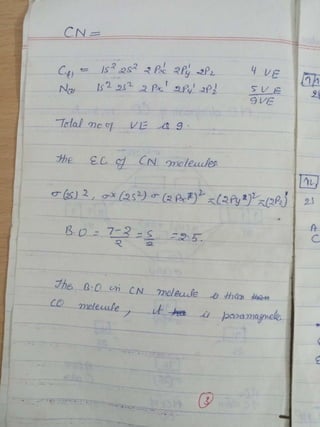 CN =
C(6) = 1s² 2s² 2Px¹ 2Py¹ 2Pz 4 VE
N(7) 1s² 2s² 2Px¹ 2Py¹ 2Pz¹ 5 VE
9VE
Total no of VE is 9.
The EC of CN molecules
σ(2s)², σ*(2s²) σ(2Px²)² π(2Py²)² π(2Pz)¹
B.O = 7-2/2 = 5/2 = 2.5.
The B.O in CN molecule is than
CO molecule, it is paramagnetic
3